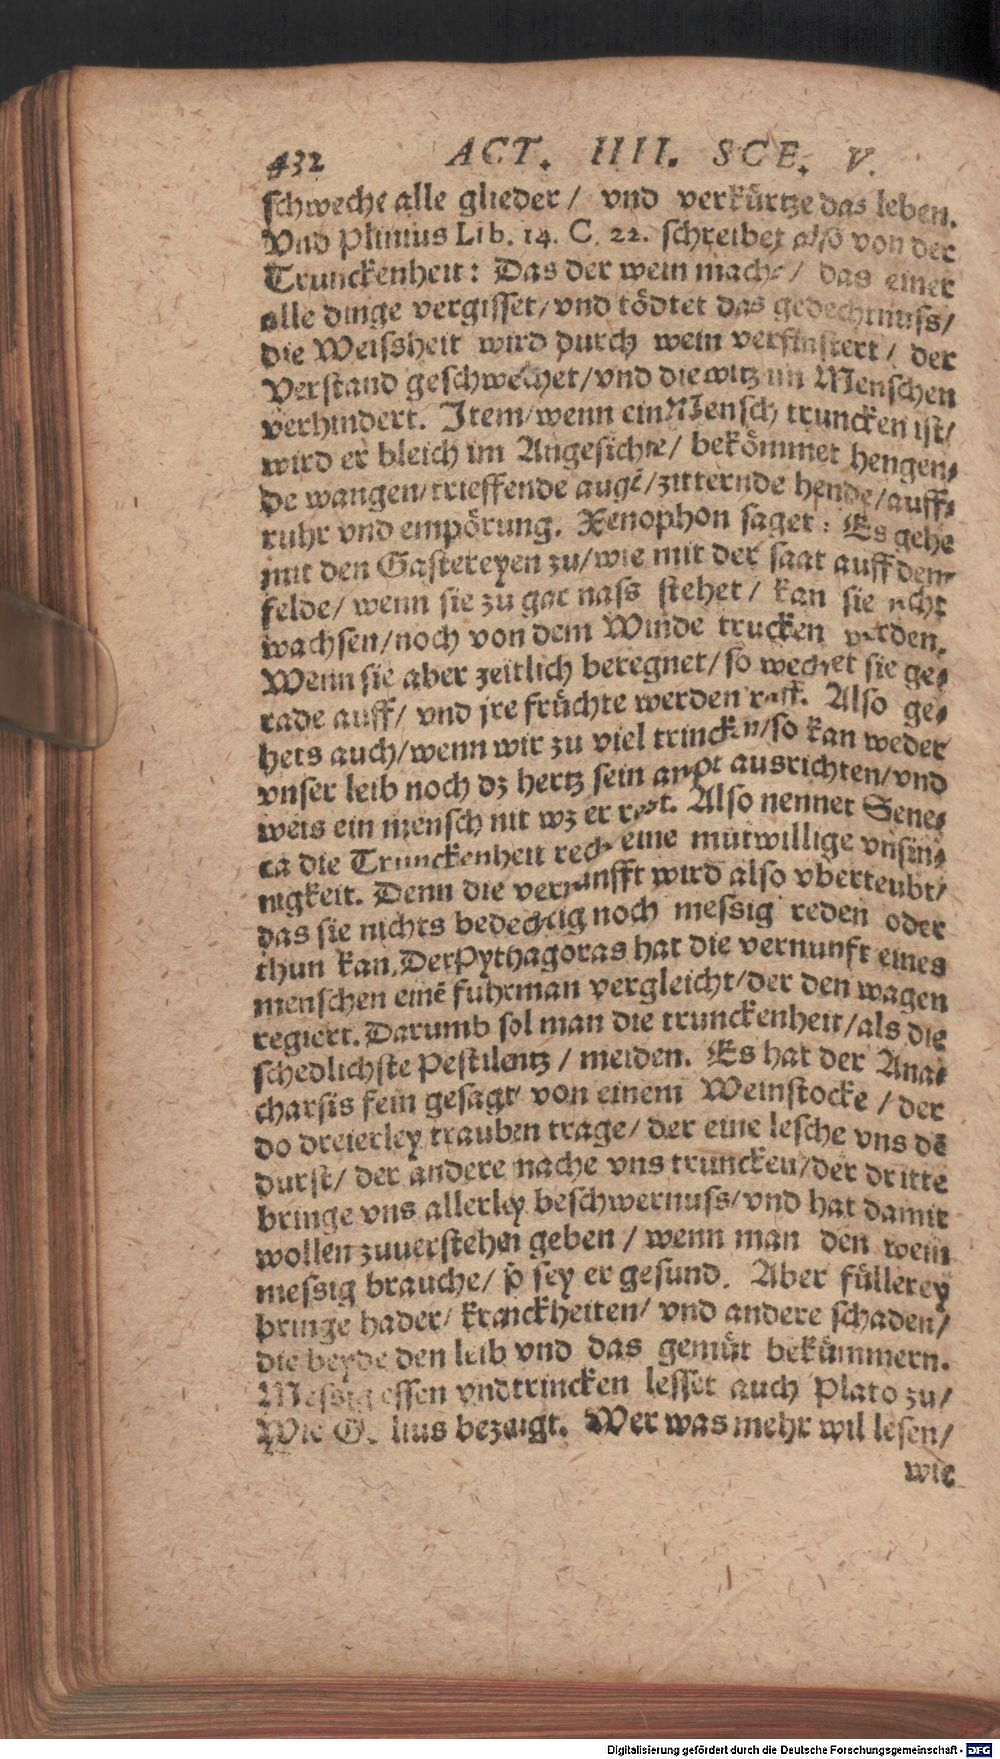 432 ACT. IIII. SCE. V.
schweche alle glieder / vnd verkürtze das leben.
Vnd Plinius Lib. 14. C. 22. schreibet also von der
Trunckenheit: Das der wein mache / das einer
alle dinge vergisset / vnd tödtet das gedechtnuss /
die Weissheit wird durch wein verfinstert / der
Verstand geschwechet / vnd die witz im Menschen
verhindert. Item / wenn ein Mensch truncken ist /
wird er bleich im Angesichte / bekömmet hengen⸗
de wangen / trieffende augē / zitternde hende / auff⸗
ruhr vnd empörung. Xenophon saget: Es gehe
mit den Gastereyen zu / wie mit der saat auff dem
felde / wenn sie zu gar nass stehet / kan sie nicht
wachsen / noch von dem Winde trucken werden.
Wenn sie aber zeitlich beregnet / so wechset sie ge⸗
rade auff / vnd jre früchte werden reiff. Also ge⸗
hets auch / wenn wir zu viel trincken / so kan weder
vnser leib noch dz hertz sein ampt ausrichten / vnd
weis ein mensch nit wz er redt. Also nennet Sene⸗
ca die Trunckenheit recht eine mutwillige vnsin⸗
nigkeit. Denn die vernunfft wird also vberteubt /
das sie nichts bedechtig noch messig reden oder
thun kan. Der Pythagoras hat die vernunft eines
menschen einē fuhrman vergleicht / der den wagen
regiert. Darumb sol man die trunckenheit / als die
schedlichste Pestilentz / meiden. Es hat der Ana⸗
charsis fein gesagt von einem Weinstocke / der
do dreierley trauben trage / der eine lesche vns dē
durst / der andere mache vns truncken / der dritte
bringe vns allerley beschwernuss / vnd hat damit
wollen zuuerstehen geben / wenn man den wein
messig brauche / so sey er gesund. Aber füllerey
bringe hader / kranckheiten / vnd andere schaden /
die beyde den leib vnd das gemüt bekümmern.
Messig essen vnd trincken lesset auch Plato zu /
Wie Gellius bezeugt. Wer was mehr wil lesen /
wie
Digitalisierung gefördert durch die Deutsche Forschungsgemeinschaft - DFG